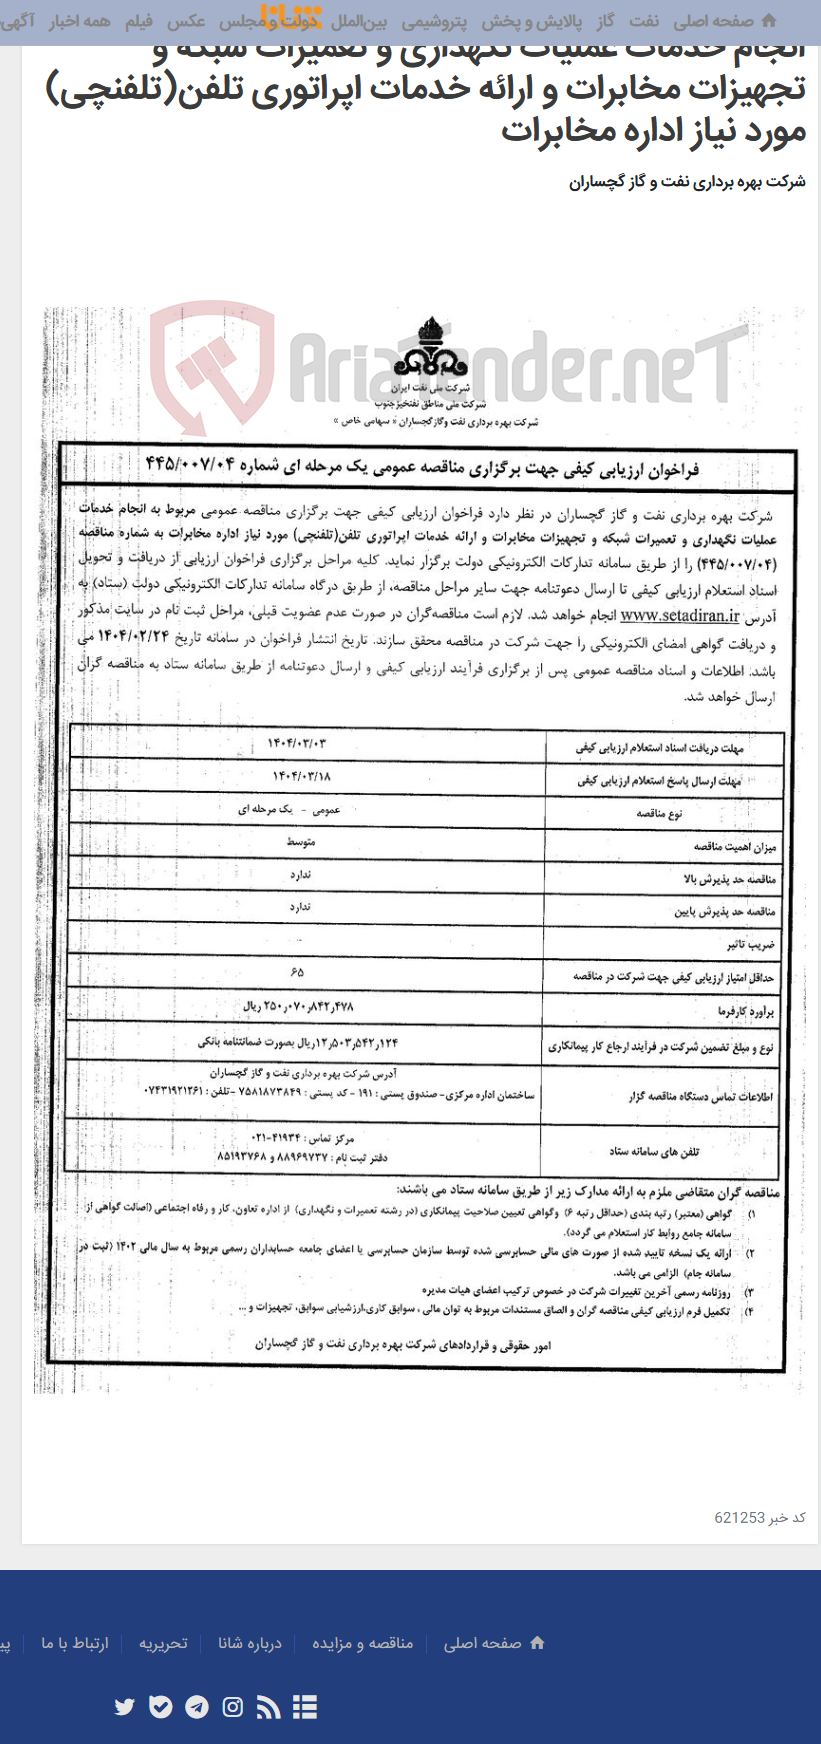 صفحه اصلی نفت گاز پالایش و پخش پتروشیمی بین‌الملل دولت و مجلس عکس فیلم همه اخبار آگهی
شانا
انجام خدمات عملیات نگهداری و تعمیرات شبکه و
تجهیزات مخابرات و ارائه خدمات اپراتوری تلفن(تلفنچی)
مورد نیاز اداره مخابرات
شرکت بهره برداری نفت و گاز گچساران
AriaTender.neT
شرکت ملی نفت ایران
شرکت ملی مناطق نفتخیز جنوب
شرکت بهره برداری نفت وگاز گچساران « سهامی خاص »
فراخوان ارزیابی کیفی جهت برگزاری مناقصه عمومی یک مرحله ای شماره ۴۴۵/۰۰۷/۰۴
شرکت بهره برداری نفت و گاز گچساران در نظر دارد فراخوان ارزیابی کیفی جهت برگزاری مناقصه عمومی مربوط به انجام خدمات
عملیات نگهداری و تعمیرات شبکه و تجهیزات مخابرات و ارائه خدمات اپراتوری تلفن(تلفنچی) مورد نیاز اداره مخابرات به شماره مناقصه
(۴۴۵/۰۰۷/۰۴) را از طریق سامانه تدارکات الکترونیکی دولت برگزار نماید. کلیه مراحل برگزاری فراخوان ارزیابی از دریافت و تحویل
اسناد استعلام ارزیابی کیفی تا ارسال دعوتنامه جهت سایر مراحل مناقصه، از طریق درگاه سامانه تدارکات الکترونیکی دولت (ستاد) به
آدرس www.setadiran.ir انجام خواهد شد. لازم است مناقصه‌گران در صورت عدم عضویت قبلی، مراحل ثبت نام در سایت مذکور
و دریافت گواهی امضای الکترونیکی را جهت شرکت در مناقصه محقق سازند. تاریخ انتشار فراخوان در سامانه تاریخ ۱۴۰۴/۰۲/۲۴ می
باشد. اطلاعات و اسناد مناقصه عمومی پس از برگزاری فرآیند ارزیابی کیفی و ارسال دعوتنامه از طریق سامانه ستاد به مناقصه گران
ارسال خواهد شد.
مهلت دریافت اسناد استعلام ارزیابی کیفی ۱۴۰۴/۰۳/۰۳
مهلت ارسال پاسخ استعلام ارزیابی کیفی ۱۴۰۴/۰۳/۱۸
نوع مناقصه عمومی - یک مرحله ای
میزان اهمیت مناقصه متوسط
مناقصه حد پذیرش بالا ندارد
مناقصه حد پذیرش پایین ندارد
ضریب تاثیر -
حداقل امتیاز ارزیابی کیفی جهت شرکت در مناقصه ۶۵
برآورد کارفرما ۲۵۰٫۰۷۰٫۸۴۲٫۴۷۸ ریال
نوع و مبلغ تضمین شرکت در فرآیند ارجاع کار پیمانکاری ۱۲٫۵۰۳٫۵۴۲٫۱۲۴ریال بصورت ضمانتنامه بانکی
آدرس شرکت بهره برداری نفت و گاز گچساران
اطلاعات تماس دستگاه مناقصه گزار ساختمان اداره مرکزی- صندوق پستی : ۱۹۱ - کد پستی : ۷۵۸۱۸۷۳۸۴۹ -تلفن : ۰۷۴۳۱۹۲۱۲۶۱
مرکز تماس : ۴۱۹۳۴-۰۲۱
تلفن های سامانه ستاد
دفتر ثبت نام : ۸۸۹۶۹۷۳۷ و ۸۵۱۹۳۷۶۸
مناقصه گران متقاضی ملزم به ارائه مدارک زیر از طریق سامانه ستاد می باشند:
۱) گواهی (معتبر) رتبه بندی (حداقل رتبه ۶) وگواهی تعیین صلاحیت پیمانکاری (در رشته تعمیرات و نگهداری) از اداره تعاون، کار و رفاه اجتماعی (اصالت گواهی از
سامانه جامع روابط کار استعلام می گردد).
۲) ارائه یک نسخه تایید شده از صورت های مالی حسابرسی شده توسط سازمان حسابرسی یا اعضای جامعه حسابداران رسمی مربوط به سال مالی ۱۴۰۲ (ثبت در
سامانه جام) الزامی می باشد.
۳) روزنامه رسمی آخرین تغییرات شرکت در خصوص ترکیب اعضای هیات مدیره
۴) تکمیل فرم ارزیابی کیفی مناقصه گران و الصاق مستندات مربوط به توان مالی ، سوابق کاری،ارزشیابی سوابق، تجهیزات و ...
امور حقوقی و قراردادهای شرکت بهره برداری نفت و گاز گچساران
کد خبر 621253
صفحه اصلی مناقصه و مزایده درباره شانا تحریریه ارتباط با ما